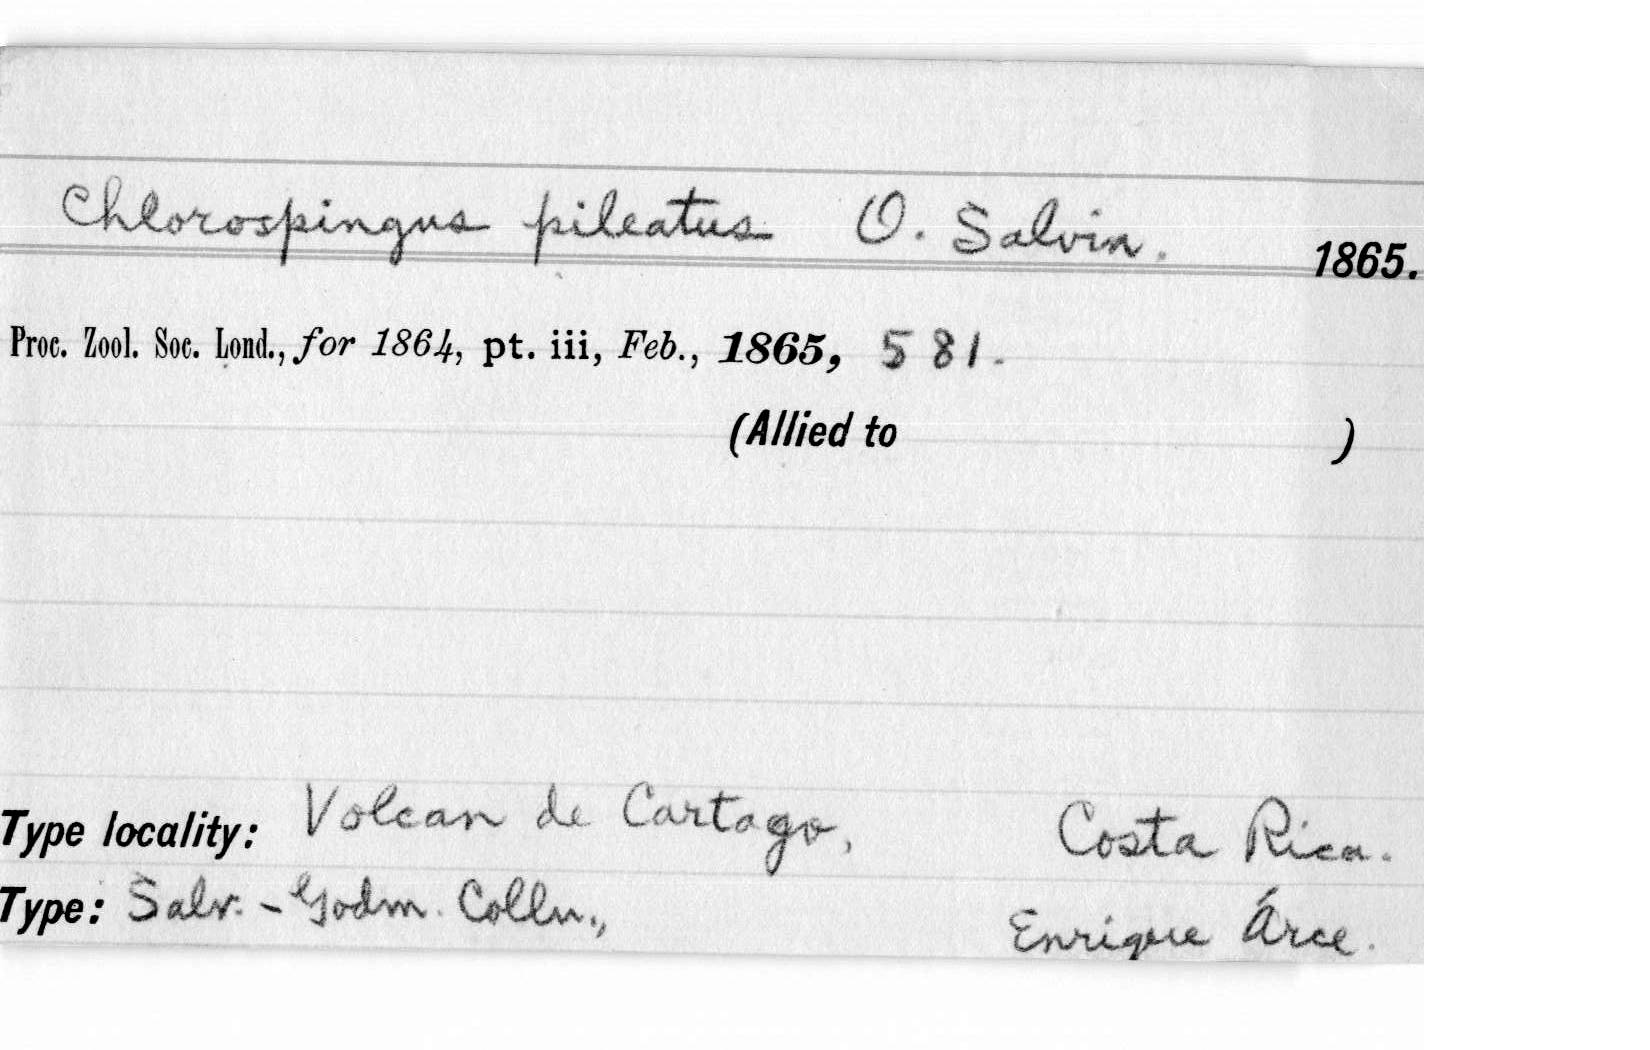 Chlorospingus pileatus O. Salvin. 1865.
Proc. Zool. Soc. Lond., for 1864, pt. iii, Feb., 1865, 581.
(Allied to )
Type locality: Volcan de Cartago, Costa Rica.
Type: Salv. - Godm. Colln., Enrique Árce.